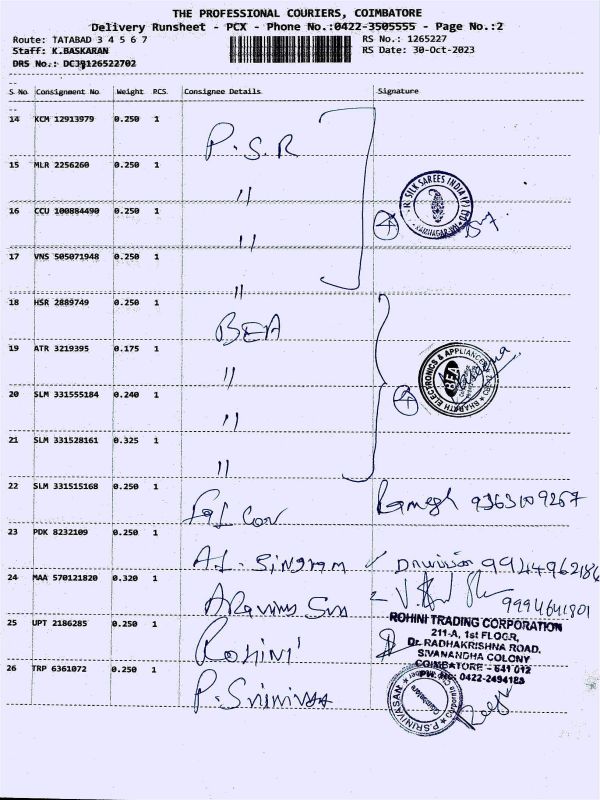 THE PROFESSIONAL COURIERS, COIMBATORE
Delivery Runsheet - PCX - Phone No.:0422-3505555 - Page No.:2
Route: TATABAD 3 4 5 6 7
RS No.: 1265227
Staff: K.BASKARAN
RS Date: 30-Oct-2023
DRS No.: DCJ9126522702
S No Consignment No Weight PCS Consignee Details Signature
14 KCM 12913979 0.250 1 P.S.R
15 MLR 2256260 0.250 1 "
16 CCU 100884490 0.250 1 "
17 VNS 505071948 0.250 1 "
R SILK SAREES INDIA (P) LTD
4
18 HSR 2889749 0.250 1 BEA
19 ATR 3219395 0.175 1 "
20 SLM 331555184 0.240 1 "
21 SLM 331528161 0.325 1 "
BHARATH ELECTRONICS & APPLIANCES
BEA
4
22 SLM 331515168 0.250 1 Ramesh 9363109267
23 PDK 8232109 0.250 1 AL. Singram
24 MAA 570121820 0.320 1 9994641801
25 UPT 2186285 0.250 1 Rohini
ROHINI TRADING CORPORATION
211-A, 1st FLOOR,
Dr. RADHAKRISHNA ROAD,
SIVANANDHA COLONY
COIMBATORE - 641 012
0422-2494183
26 TRP 6361072 0.250 1 P. Srinivasa
P.SRINIVASAN
Coimbatore